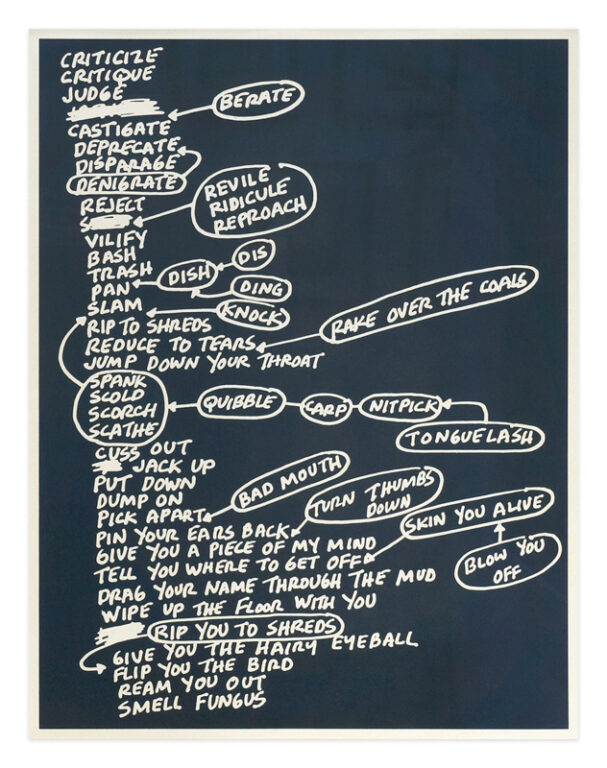 CRITICIZE
CRITIQUE
JUDGE
BERATE
CASTIGATE
DEPRECATE
DISPARAGE
DENIGRATE
REJECT
REVILE
RIDICULE
REPROACH
VILIFY
BASH
TRASH
DIS
DISH
PAN
DING
SLAM
KNOCK
RIP TO SHREDS
RAKE OVER THE COALS
REDUCE TO TEARS
JUMP DOWN YOUR THROAT
SPANK
SCOLD
SCORCH
SCATHE
QUIBBLE
CARP
NITPICK
TONGUELASH
CUSS OUT
JACK UP
PUT DOWN
DUMP ON
BAD MOUTH
PICK APART
TURN THUMBS
DOWN
PIN YOUR EARS BACK
SKIN YOU ALIVE
GIVE YOU A PIECE OF MY MIND
TELL YOU WHERE TO GET OFF
BLOW YOU
OFF
DRAG YOUR NAME THROUGH THE MUD
WIPE UP THE FLOOR WITH YOU
RIP YOU TO SHREDS
GIVE YOU THE HAIRY EYEBALL
FLIP YOU THE BIRD
REAM YOU OUT
SMELL FUNGUS